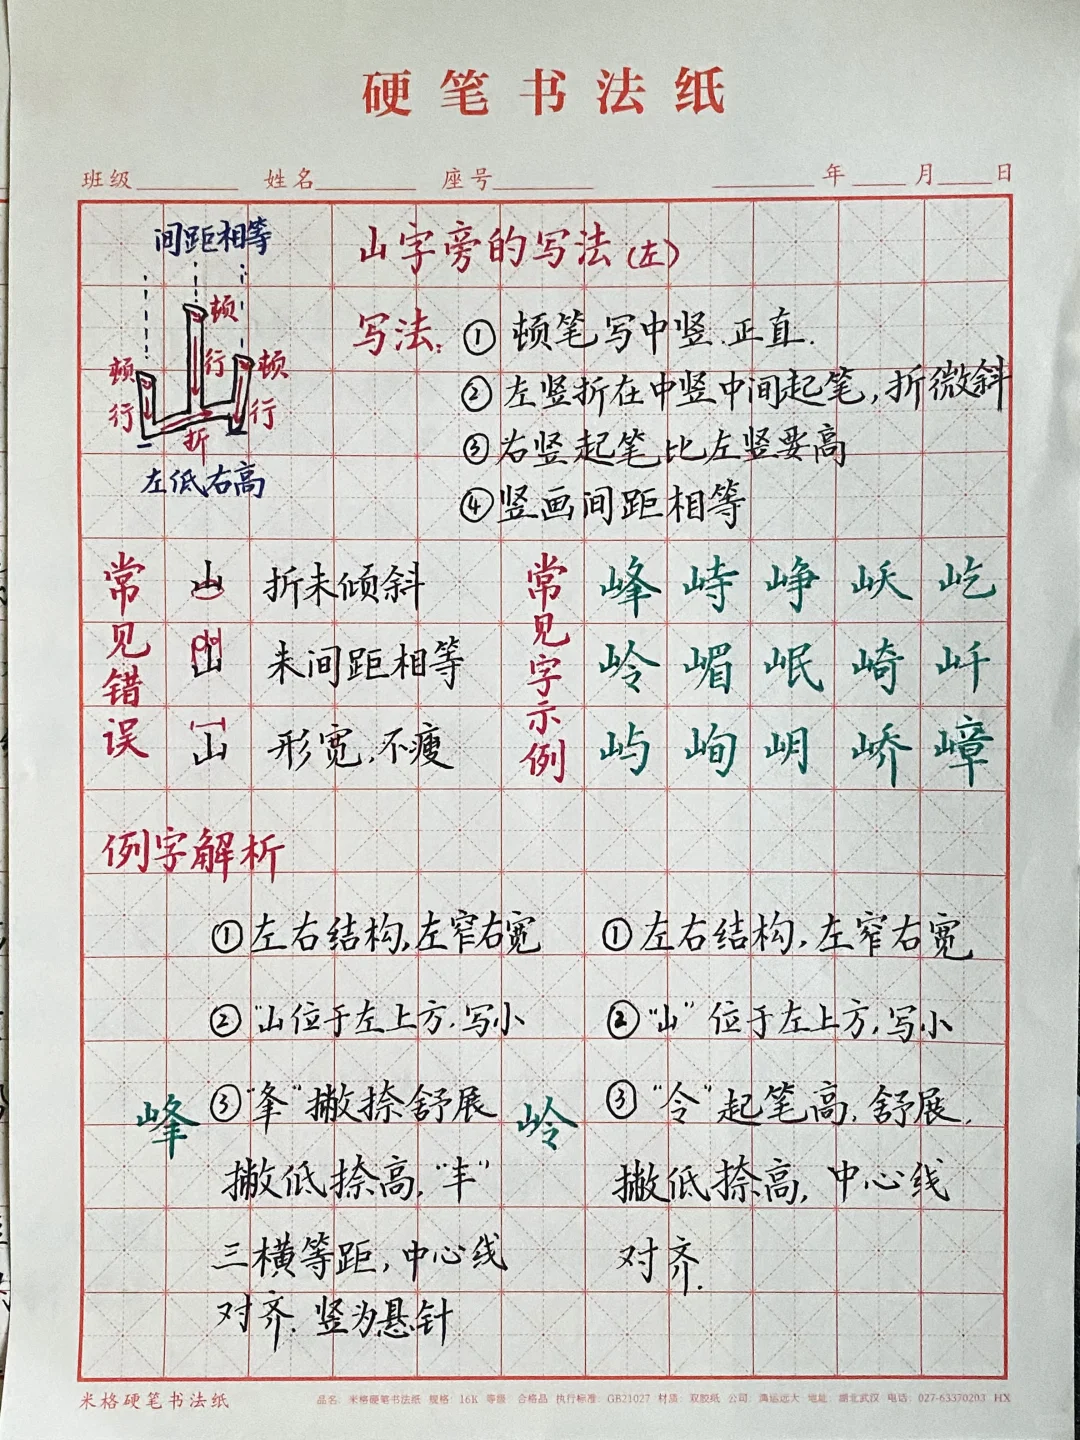 硬笔书法纸
班级 姓名 座号 年 月 日
间距相等
山字旁的写法(左)
顿
行
顿
行
顿
行
折
左低右高
写法:①顿笔写中竖.正直.
②左竖折在中竖中间起笔,折微斜
③右竖起笔比左竖要高
④竖画间距相等
常见错误
山 折未倾斜
山 未间距相等
山 形宽,不瘦
常见字示例
峰 峙 峥 岆 屹
岭 嵋 岷 崎 屽
屿 峋 岄 峤 嶂
例字解析
峰
①左右结构,左窄右宽
②"山位于左上方.写小
③"夆"撇捺舒展
撇低捺高,"丰"
三横等距,中心线
对齐.竖为悬针
岭
①左右结构,左窄右宽
②"山"位于左上方,写小
③"令"起笔高.舒展.
撇低捺高,中心线
对齐.
米格硬笔书法纸
品名:米格硬笔书法纸 规格:16K 等级 合格品 执行标准:GB21027 材质:双胶纸 公司:鸿运远大 地址:湖北武汉 电话:027-63370203 HX